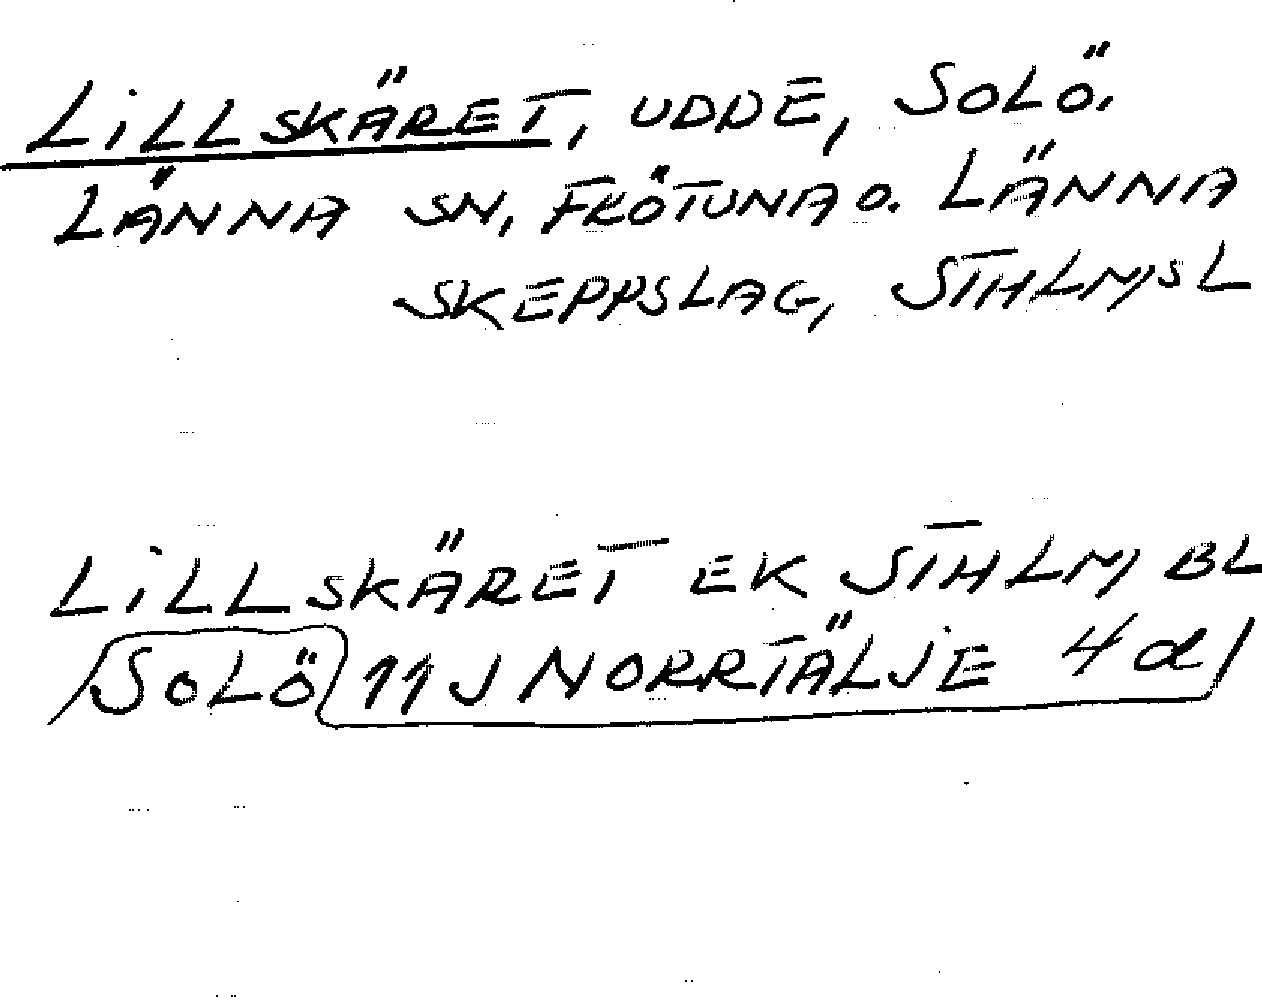 LiLLSKÄRET, UDDE, SOLÖ.
LÄNNA SN, FRÖTUNA O. LÄNNA
SKEPPSLAG, STHLMSL
LiLLSKÄRET EK STHLM BL
SOLÖ 11J NORRTÄLJE 4d